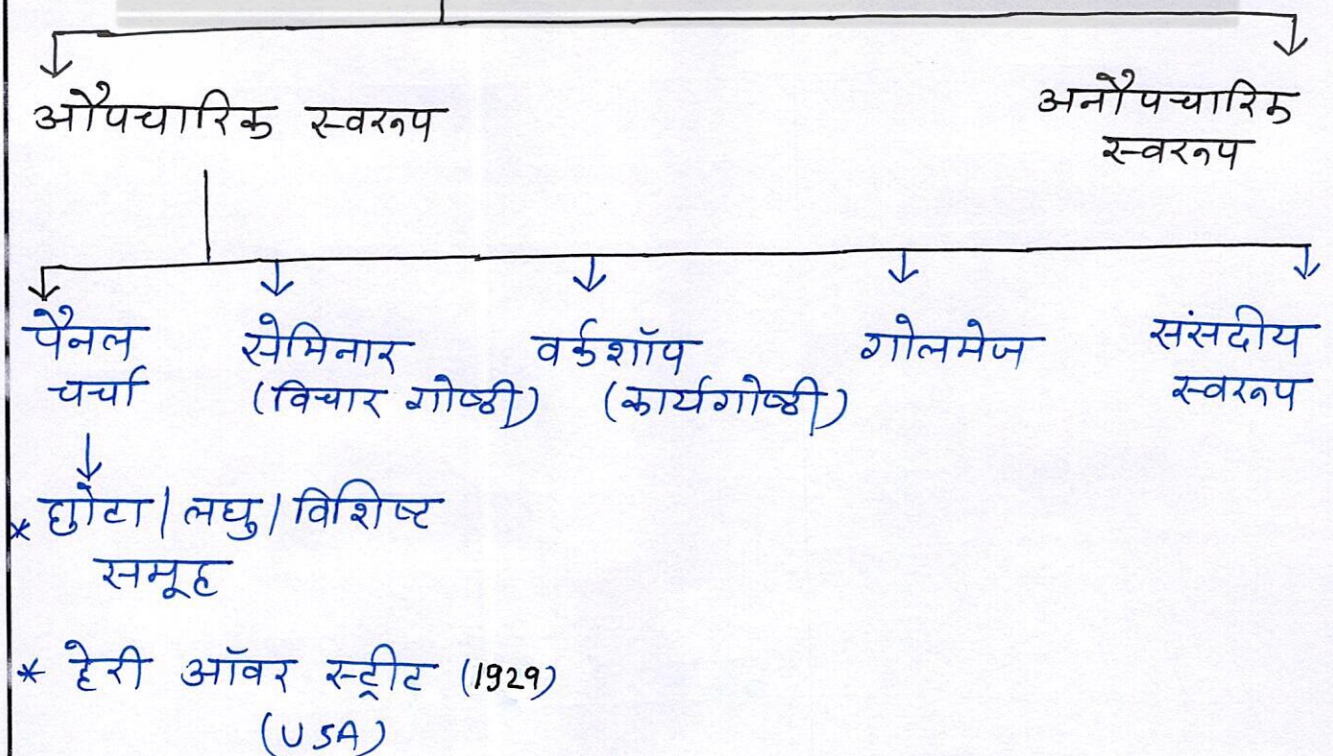 औपचारिक स्वरूप
अनौपचारिक
स्वरूप
पैनल
चर्चा
सेमिनार
(विचार गोष्ठी)
वर्कशॉप
(कार्यगोष्ठी)
गोलमेज
संसदीय
स्वरूप
* छोटा / लघु / विशिष्ट
समूह
* हेरी ऑवर स्ट्रीट (1929)
(USA)